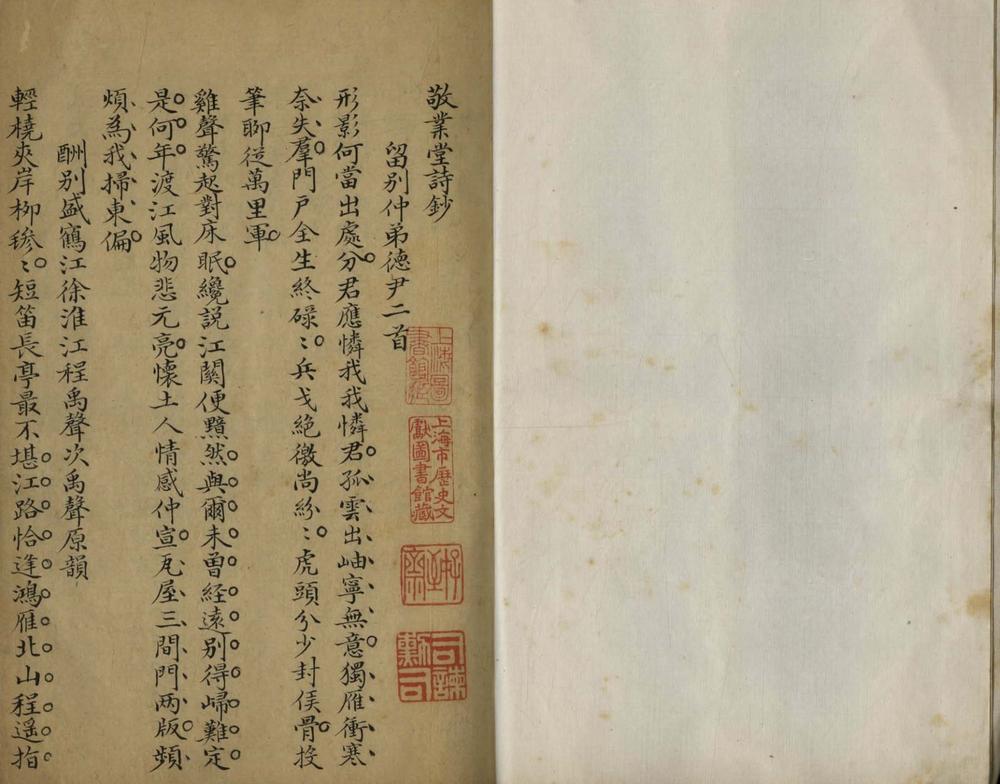 敬業堂詩鈔
留别仲弟德尹二首
形影何當出處分君應憐我我憐君孤雲出岫寧無意獨雁衝寒
奈失羣門戶全生終碌〻兵戈絕徼尚紛〻虎頭分少封侯骨投
筆聊從萬里軍
雞聲驚起對床眠纔説江關便黯然與爾未曾経遠别得歸難定
是何年渡江風物悲元亮懷土人情感仲宣瓦屋三間門两版頻
煩為我掃東偏
酬别盛鶴江徐淮江程禹聲次禹聲原韻
輕橈夾岸柳毿〻短笛長亭最不堪江路恰逢鴻雁北山程遥指
上海圖書館藏
上海市歷史文獻圖書館藏
司諫司勳